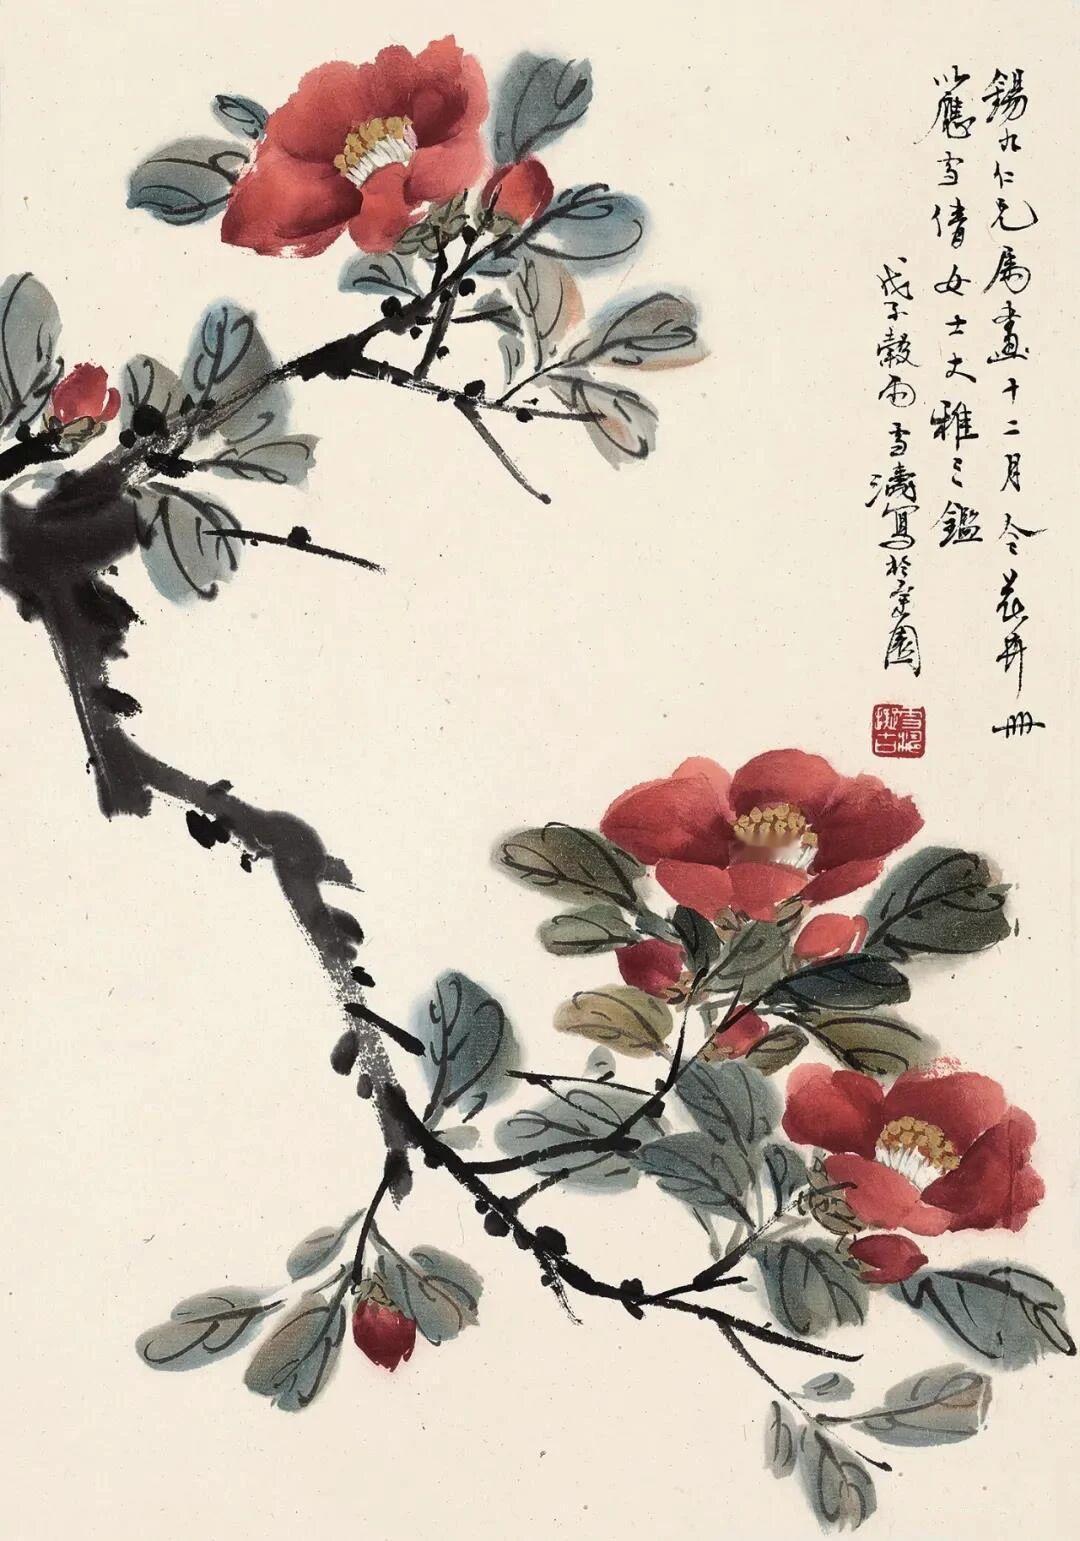 錫九仁兄属畫十二月令花卉冊
以應雪倩女士大雅之鑑
戊子穀雨雪濤寫於園